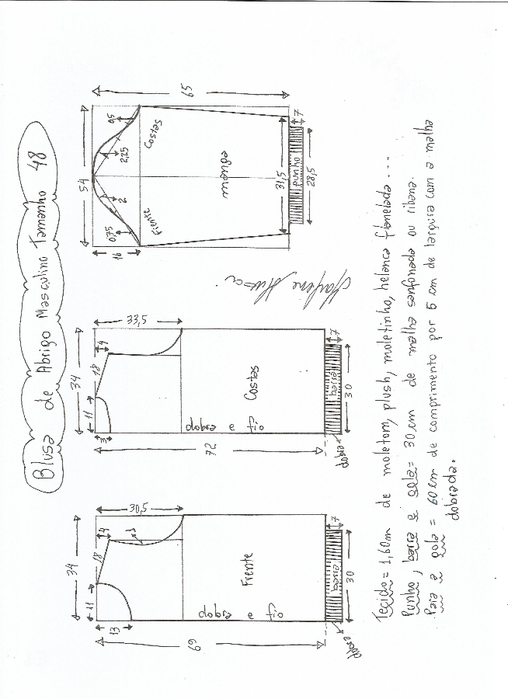 Blusa de Abrigo Masculino Tamanho 48
34
11
18
4
30,5
1
13
69
Frente
dobra e fio
barra
7
30
dobra
34
11
18
4
33,5
3
72
Costas
dobra e fio
barra
7
30
dobra
54
65
16
0,75
2
2,25
0,5
Frente
Costas
manga
31,5
punho
7
28,5
Tecido = 1,60m de moletom, plush, moletinho, helanca flanelada ...
Punho, barra e gola = 30 cm de malha sanfonada ou ribana.
Para a gola = 60 cm de comprimento por 5 cm de largura com a malha
dobrada.